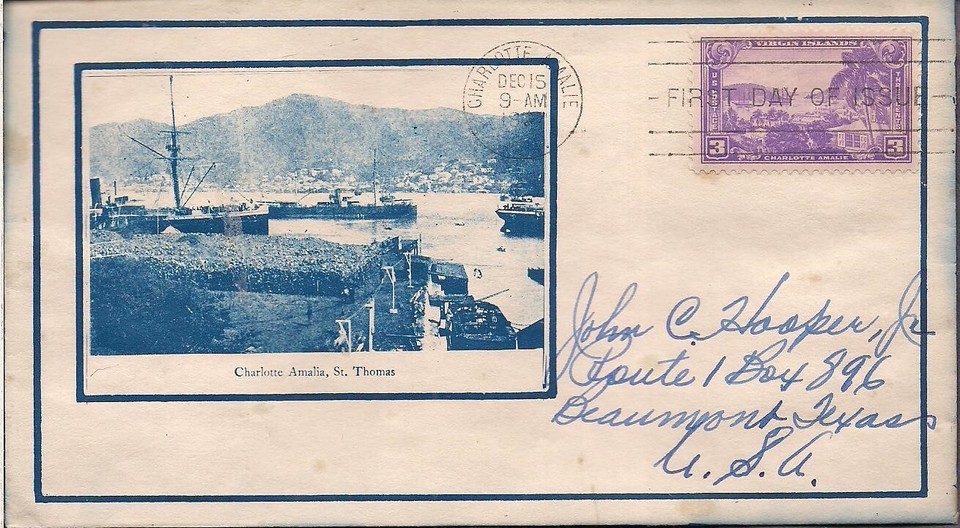 CHARLOTTE AMALIE
DEC 15
9-AM
FIRST DAY OF ISSUE
VIRGIN ISLANDS
U.S. POSTAGE
THREE CENTS
3 3
CHARLOTTE AMALIE
Charlotte Amalia, St. Thomas
John C. Hooper, Jr
Route 1 Box 896
Beaumont Texas
U. S. A.